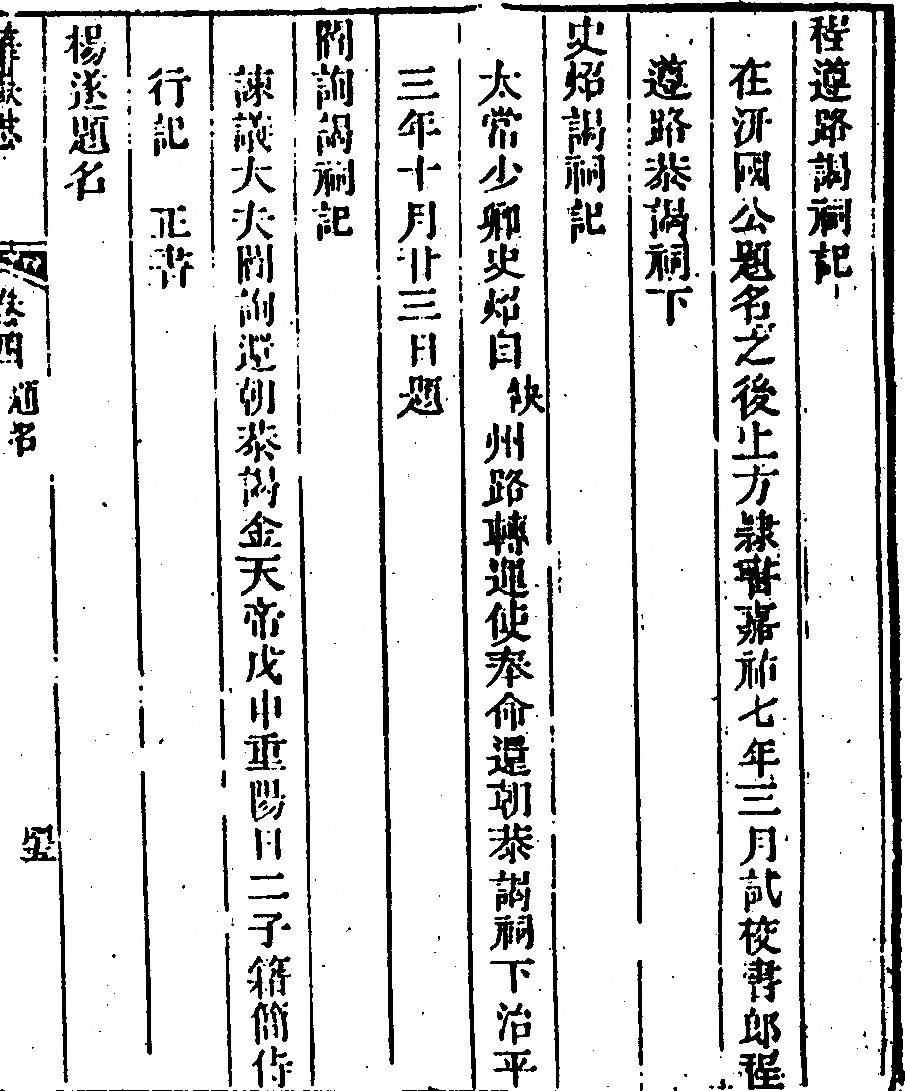 程遵路謁祠記
在沂國公題名之後上方隷書嘉祐七年三月試校書郎程
遵路恭謁祠下
史炤謁祠記
太常少卿史炤自缺州路轉運使奉命還朝恭謁祠下治平
三年十月廿三日題
閻詢謁祠記
諫議大夫閻詢還朝恭謁金天帝戊申重陽日二子籍簡侍
行記　正書
楊遂題名
卷四
題名